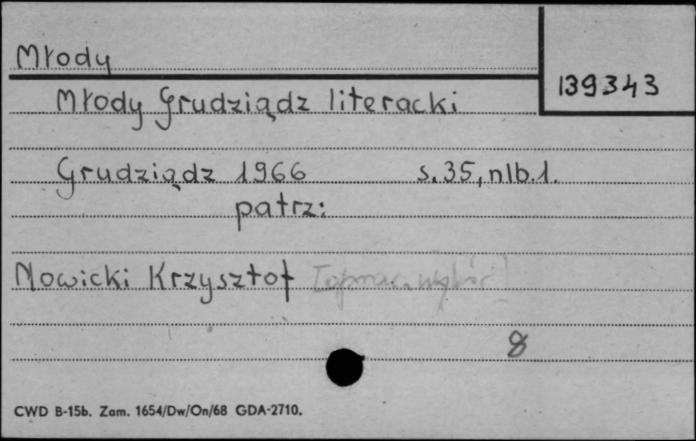 Młody
139343
Młody Grudziądz literacki
Grudziądz 1966 s. 35, nlb. 1.
patrz:
Nowicki Krzysztof [oprac. wybór]
8
CWD B-15b. Zam. 1654/Dw/On/68 GDA-2710.